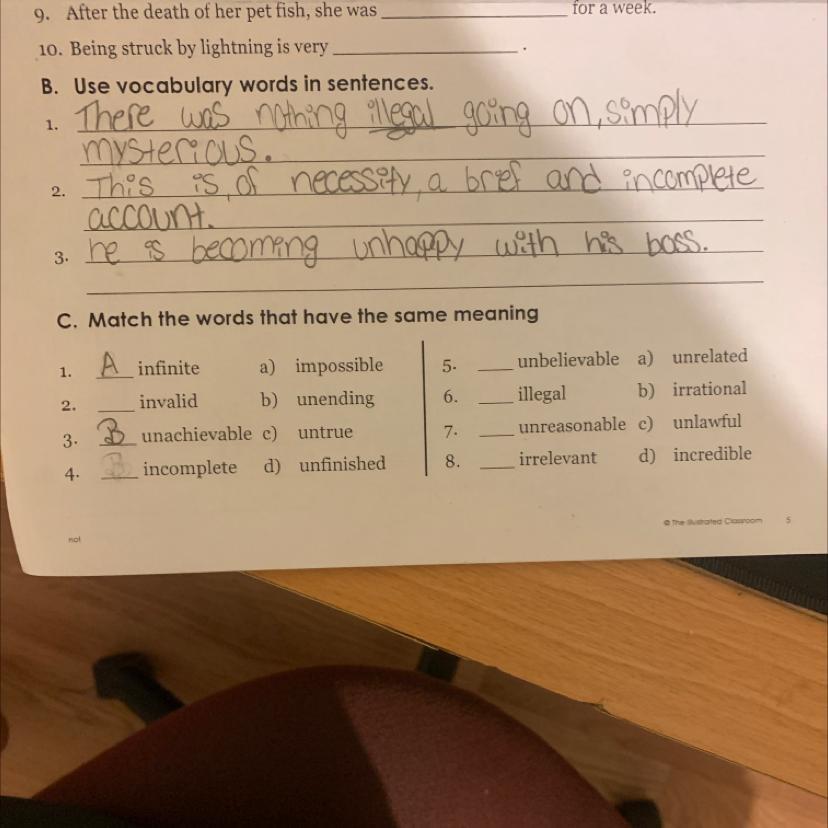 9. After the death of her pet fish, she was ____________ for a week.
10. Being struck by lightning is very ____________ .
B. Use vocabulary words in sentences.
1. There was nothing illegal going on, simply
mysterious.
2. This is, of necessity, a brief and incomplete
account.
3. he is becoming unhappy with his boss.
C. Match the words that have the same meaning
1. A infinite a) impossible 5. ____ unbelievable a) unrelated
2. ____ invalid b) unending 6. ____ illegal b) irrational
3. B unachievable c) untrue 7. ____ unreasonable c) unlawful
4. ____ incomplete d) unfinished 8. ____ irrelevant d) incredible
© The Illustrated Classroom 5
not